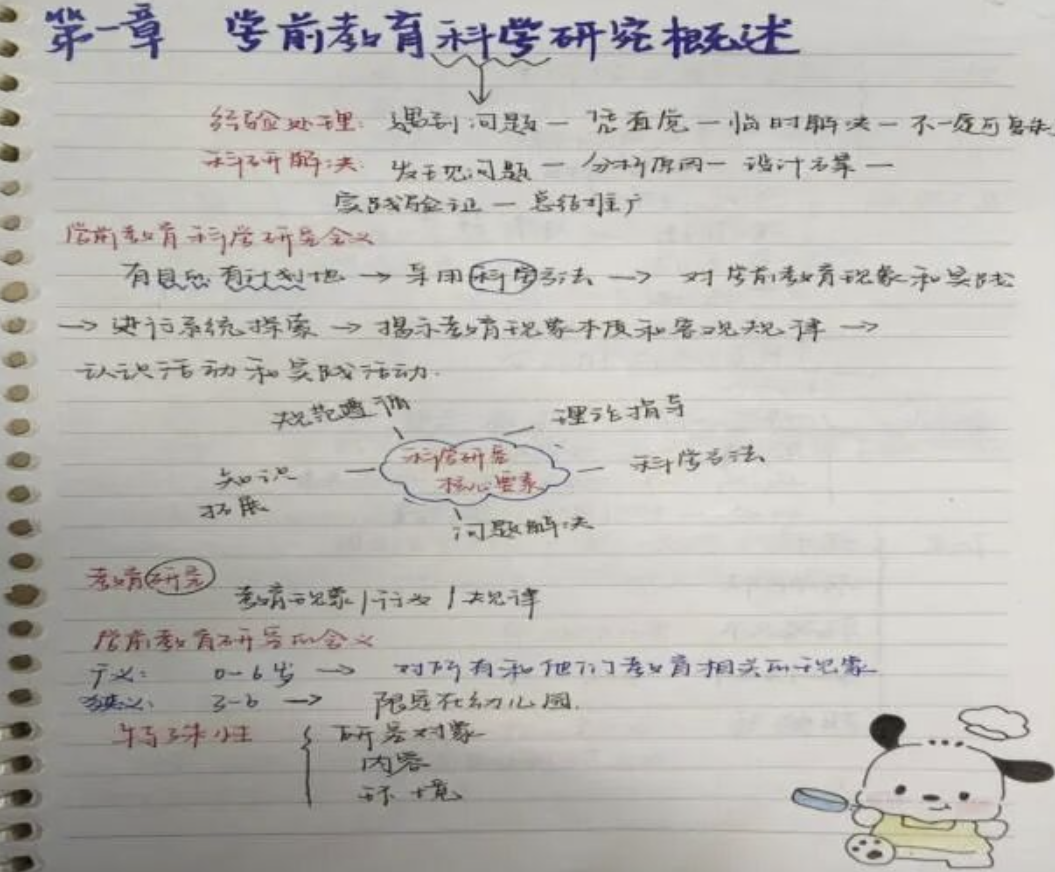 第一章 学前教育科学研究概述
经验处理: 遇到问题 — 凭直觉 — 临时解决 — 不一定可复
科研解决: 发现问题 — 分析原因 — 设计方案 —
实践验证 — 总结推广
学前教育科学研究含义
有目的 有计划地 → 采用科学方法 → 对学前教育现象和实践
→ 进行系统探索 → 揭示教育现象本质和客观规律 →
认识活动和实践活动.
规范遵循 理论指导
科学研究 科学方法
知识 核心要素
拓展
问题解决
教育研究
教育现象 / 行为 / 规律
学前教育研究的含义
广义: 0-6岁 → 对所有和他们教育相关的现象
狭义: 3-6 → 限定在幼儿园.
特殊性 { 研究对象
内容
环境